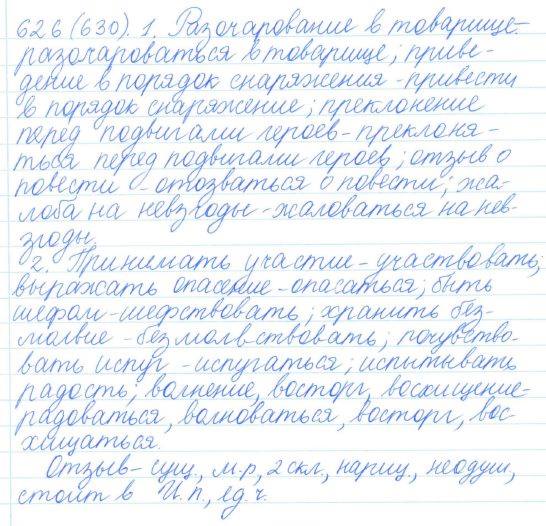 626 (630). 1. Разочарование в товарище-
разочароваться в товарище; приве-
дение в порядок снаряжения - привести
в порядок снаряжение; преклонение
перед подвигами героев - преклоня-
ться перед подвигами героев; отзыв о
повести - отозваться о повести; жа-
лоба на невзгоды - жаловаться на нев-
згоды.
2. Принимать участие - участвовать;
выражать опасение - опасаться; быть
шефом - шефствовать; хранить без-
молвие - безмолвствовать; почувство-
вать испуг - испугаться; испытывать
радость, волнение, восторг, восхищение-
радоваться, волноваться, восторг, вос-
хищаться.
Отзыв - сущ., м.р, 2 скл, нариц., неодуш,
стоит в И.п., ед.ч.